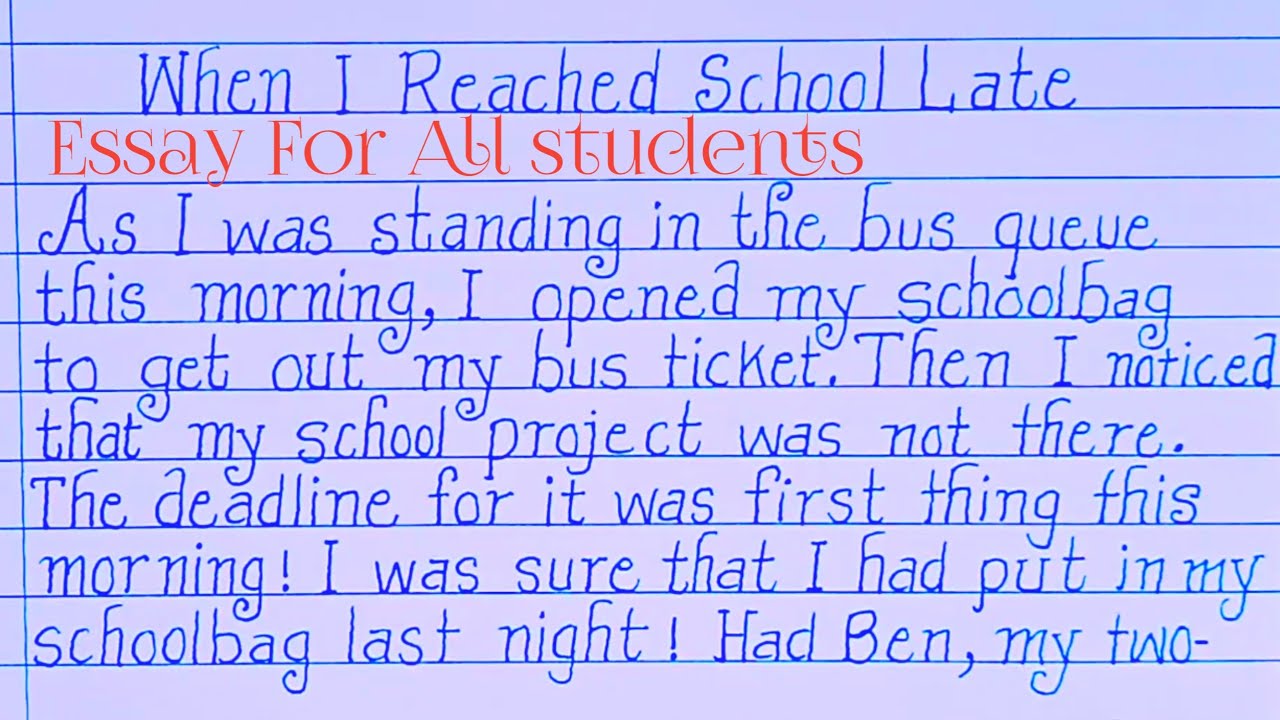 When I Reached School Late
Essay For All students
As I was standing in the bus queue
this morning, I opened my schoolbag
to get out my bus ticket. Then I noticed
that my school project was not there.
The deadline for it was first thing this
morning! I was sure that I had put in my
schoolbag last night! Had Ben, my two-